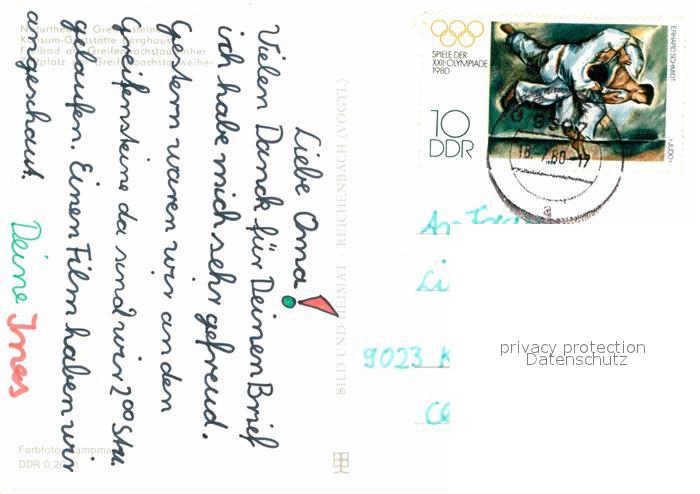 Liebe Oma!
Vielen Danck für Deinen Brief
ich habe mich sehr gefreud.
Gestern waren wir an den
Greifensteine da sind wir 2⁰⁰ Stu.
gelaufen. Einen Film haben wir
angeschaut.
Deine Ines
Naturtheater Greifensteine
Konsum-Gaststätte Berghaus
Freibad am Greifenbachstauweiher
Zeltplatz am Greifenbachstauweiher
Farbfoto:
DDR 0,20 M
BILD UND HEIMAT · REICHENBACH (VOGTL)
SPIELE DER
XXII. OLYMPIADE
1980
10
DDR
ERHARD SCHMIDT
»JUDO«
18.-7.80-17
a
9023 K
privacy protection
Datenschutz